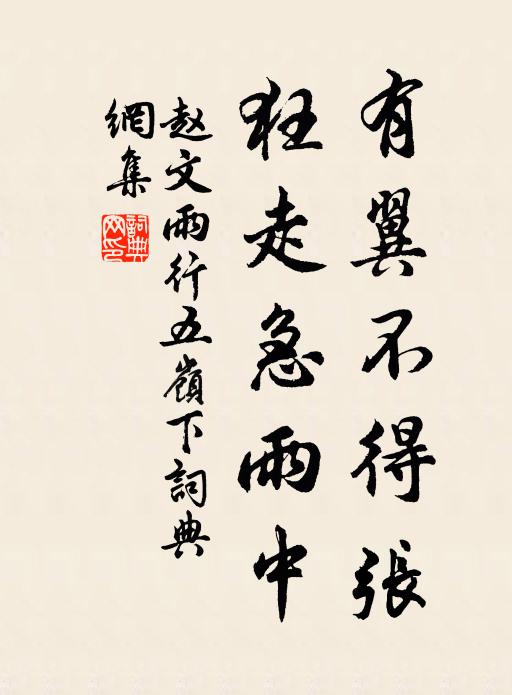 有翼不得張
狂走急雨中
赵文雨行五嶺下詞典
網集
詞典網印